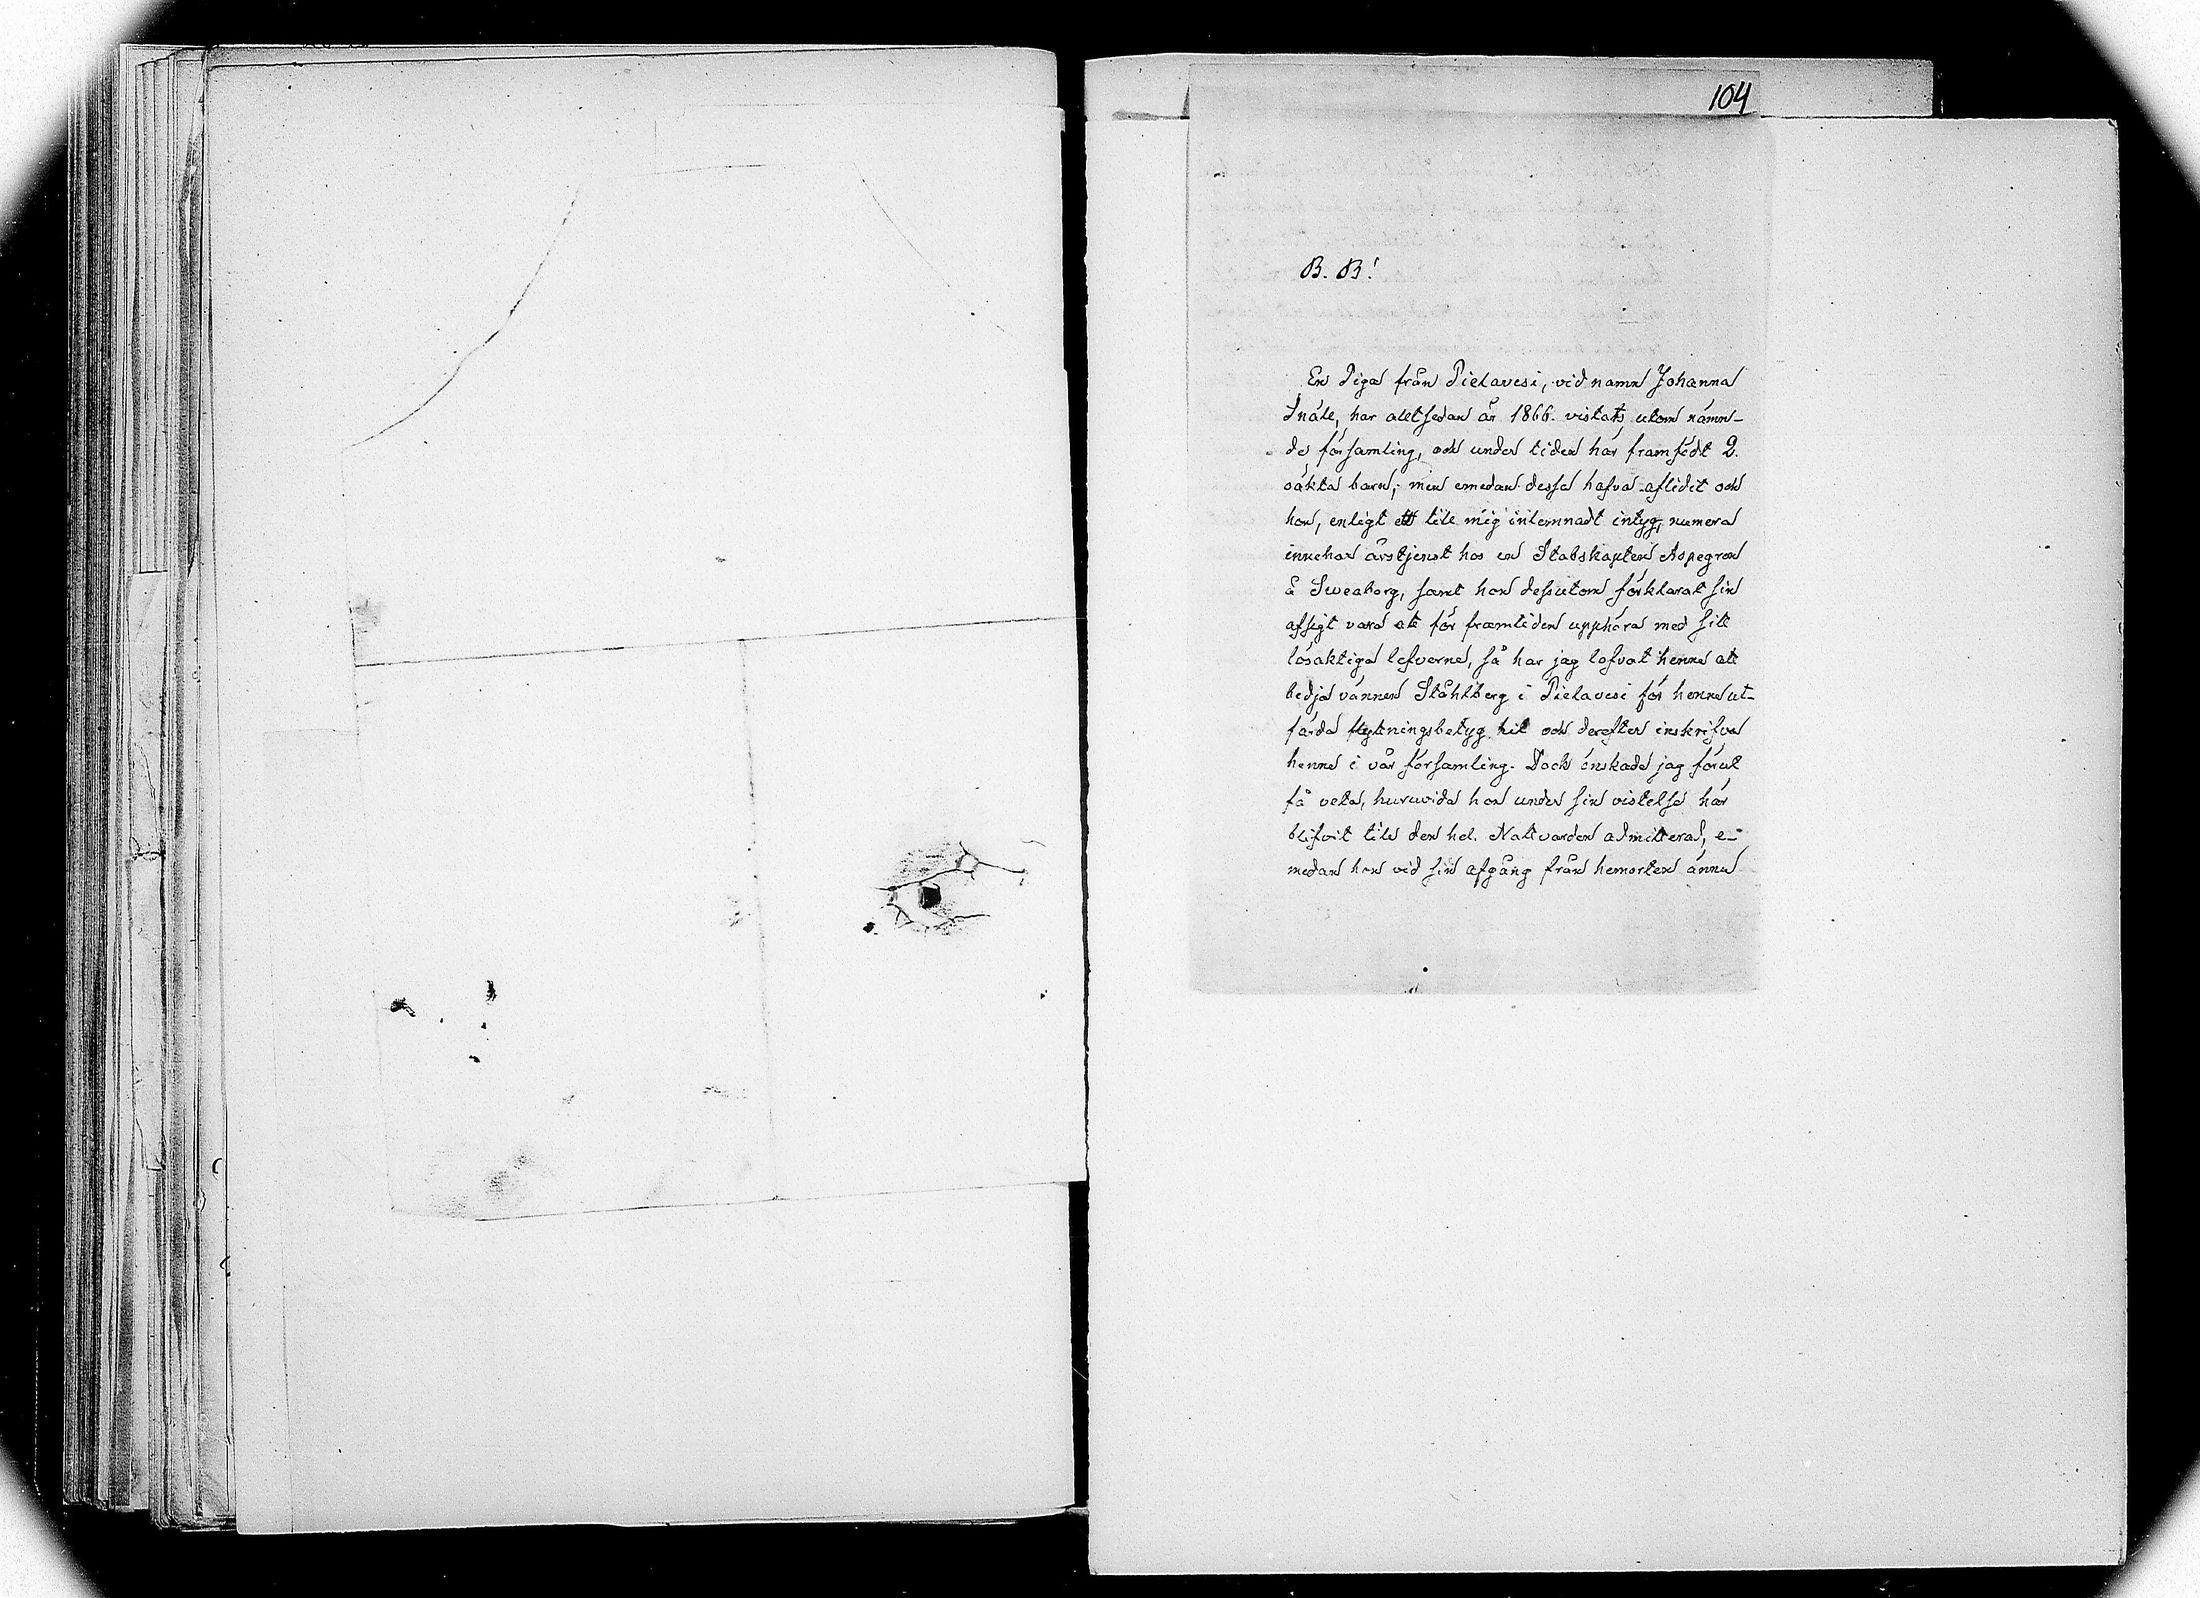 104
B. B!
En Piga från Pielavesi, vid namn Johanna
Snäll, har alltsedan år 1866 vistats utom nämn-
de församling, och under tiden här framfödt 2.
oäkta barn; men emedan dessa hafva aflidit och
hon, enligt ett till mig inlemnadt intyg, numera
innehar årstjenst hos en Stabskapten Aspegren
å Sweaborg, samt hon dessutom förklarat sin
afsigt vara att för framtiden upphöra med sitt
lösaktiga lefverne, så har jag lofvat henne att
bedja vännen Ståhlberg i Pielavesi för henne ut-
färda flyttningsbetyg hit och derefter inskrifva
henne i vår församling. Dock önskade jag förut
få veta, huruvida hon under sin vistelse här
blifvit till den hel. Nattvarden admitterad, e-
medan hon vid sin afgång från hemorten ännu